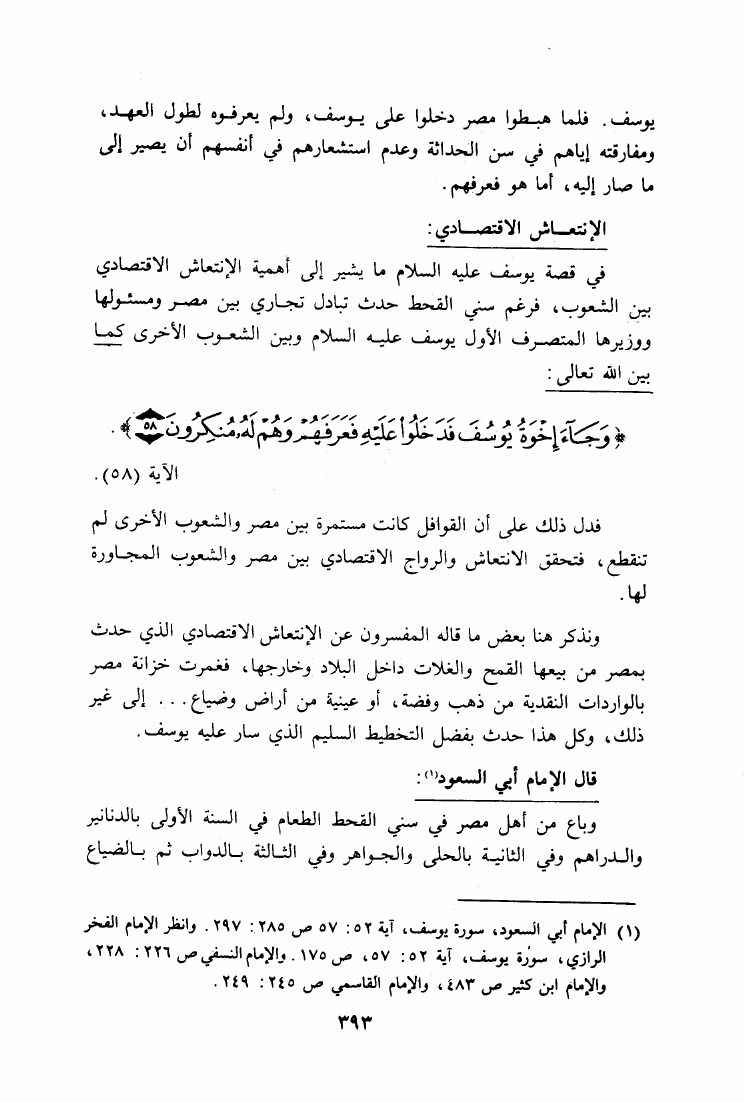 يوسف. فلما هبطوا مصر دخلوا على يوسف، ولم يعرفوه لطول العهد،
ومفارقته إياهم في سن الحداثة وعدم استشعارهم في أنفسهم أن يصير إلى
ما صار إليه، أما هو فعرفهم.
الإنتعاش الاقتصادي:
في قصة يوسف عليه السلام ما يشير إلى أهمية الإنتعاش الاقتصادي
بين الشعوب، فرغم سني القحط حدث تبادل تجاري بين مصر ومسئولها
ووزيرها المتصرف الأول يوسف عليه السلام وبين الشعوب الأخرى كما
بين الله تعالى:
﴿وَجَآءَ إِخْوَةُ يُوسُفَ فَدَخَلُواْ عَلَيْهِ فَعَرَفَهُمْ وَهُمْ لَهُۥ مُنكِرُونَ ٥٨﴾.
الآية (٥٨).
فدل ذلك على أن القوافل كانت مستمرة بين مصر والشعوب الأخرى لم
تنقطع، فتحقق الانتعاش والرواج الاقتصادي بين مصر والشعوب المجاورة
لها.
ونذكر هنا بعض ما قاله المفسرون عن الإنتعاش الاقتصادي الذي حدث
بمصر من بيعها القمح والغلات داخل البلاد وخارجها، فغمرت خزانة مصر
بالواردات النقدية من ذهب وفضة، أو عينية من أراض وضياع... إلى غير
ذلك، وكل هذا حدث بفضل التخطيط السليم الذي سار عليه يوسف.
قال الإمام أبي السعود(١):
وباع من أهل مصر في سني القحط الطعام في السنة الأولى بالدنانير
والدراهم وفي الثانية بالحلى والجواهر وفي الثالثة بالدواب ثم بالضياع
(١) الإمام أبي السعود، سورة يوسف، آية ٥٢: ٥٧ ص ٢٨٥: ٢٩٧. وانظر الإمام الفخر
الرازي، سورة يوسف، آية ٥٢: ٥٧، ص ١٧٥. والإمام النسفي ص ٢٢٦: ٢٢٨،
والإمام ابن كثير ص ٤٨٣، والإمام القاسمي ص ٢٤٥: ٢٤٩.
٣٩٣